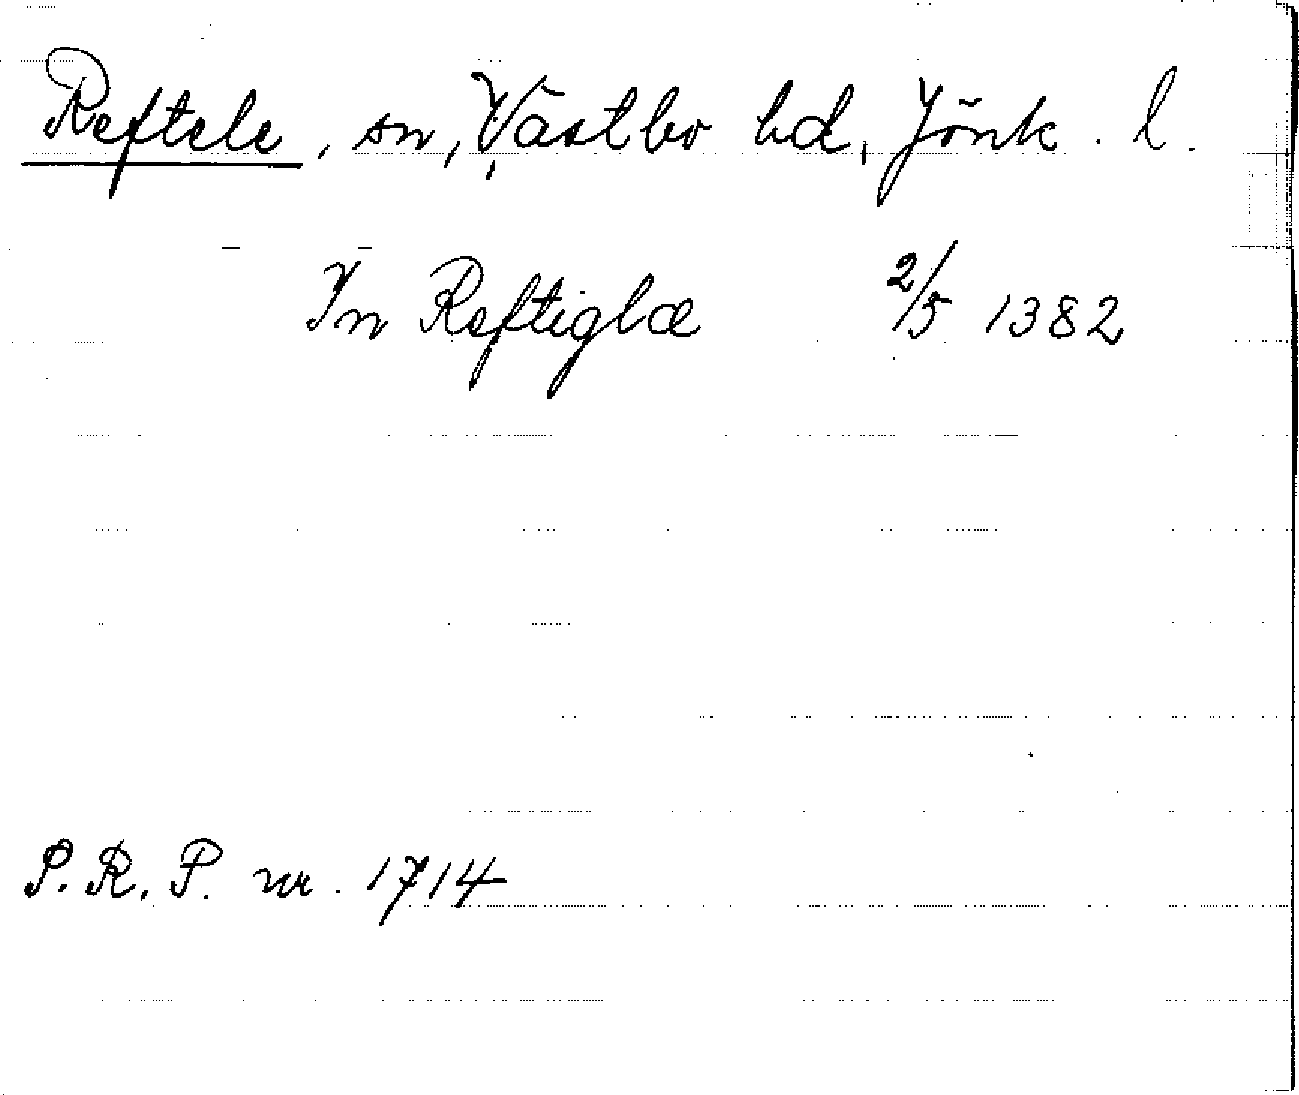 Reftele, sn, Västbo hd, Jönk. l.
In Reftiglæ 2/5 1382
S.R.P. nr. 1714